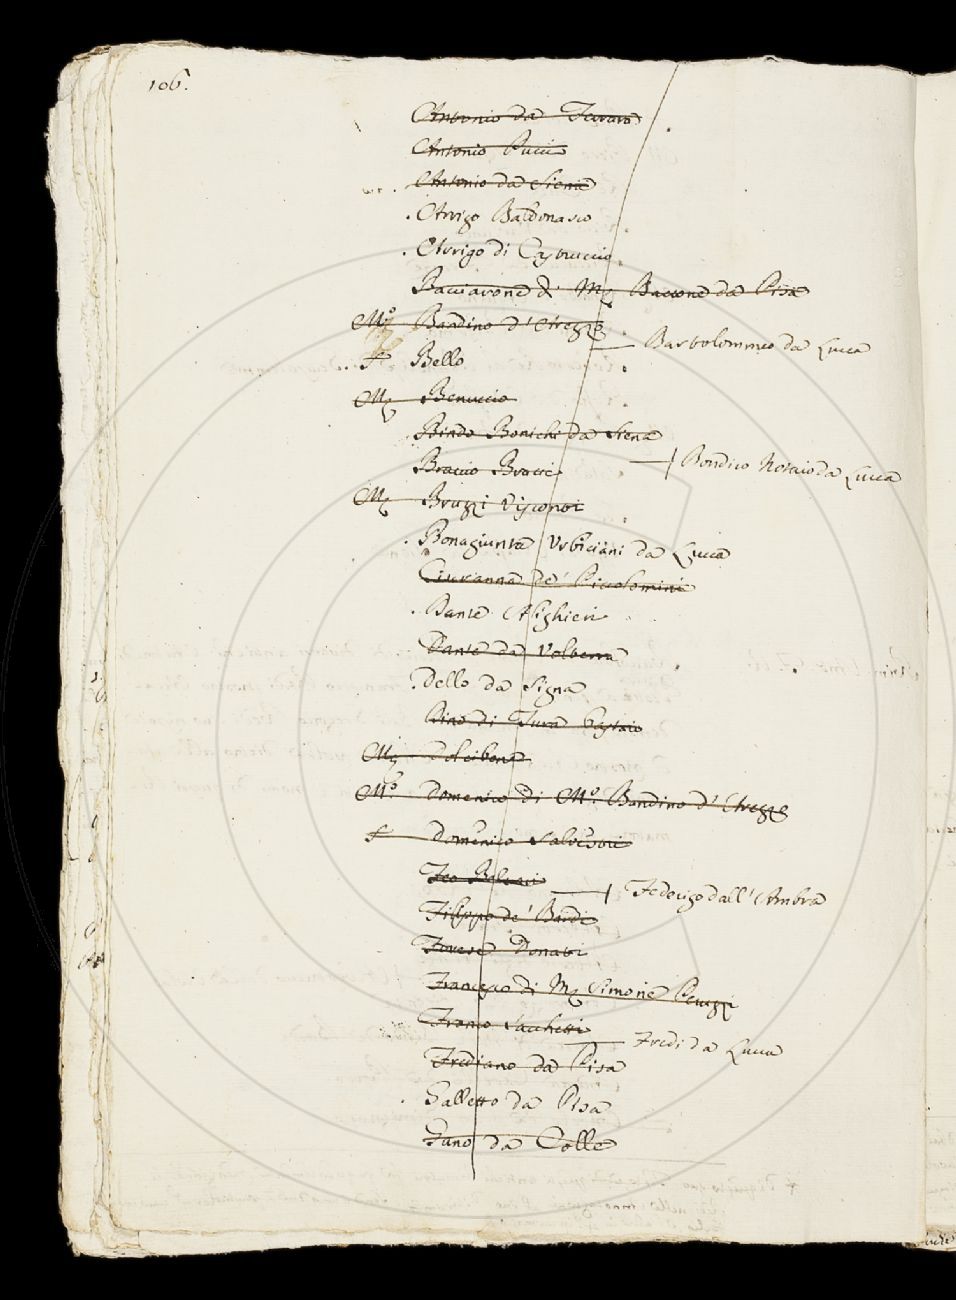 106.
Antonio da Ferrara
Antonio Pucci
Antonio da Siena
Arrigo Baldonasco
Arrigo di Castruccio
Bacciarone di Mess. Bacone da Pisa
M.º Bandino d'Arezzo
Bartolommeo da Lucca
f. Bello
M. Benuccio
Bindo Bonichi da Siena
Bondico Notaio da Lucca
Braccio Bracci
M. Bruzzi Visconti
Bonagiunta Urbiciani da Lucca
Ciuranna de' Piccolomini
Dante Alighieri
Dante da Volterra
Dello da Signa
Dino di Tura Bastaio
M. Dolcibene
M.º Domenico di M.º Bandino d'Arezzo
f. Domenico Salvestri
Feo Belcari
Federigo dall'Ambra
Filippo de' Bardi
Forese Donati
Francesco di M. Simone Peruzzi
Franco Sacchetti
Fredi da Lucca
Frediano da Pisa
Galletto da Pisa
Gano da Colle